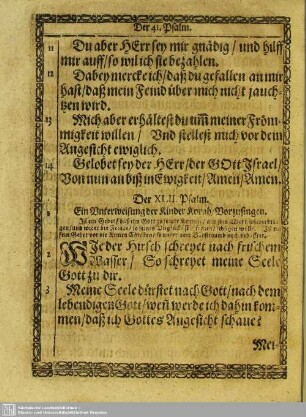 Der 41. Psalm.
11 Du aber HErr sey mir gnädig / und hilff
mir auff / so wil ich sie bezahlen.
12 Dabey mercke ich / daß du gefallen an mir
hast / daß mein Feind über mich nicht jauch-
tzen wird.
13 Mich aber erhältest du umm meiner Fröm-
migkeit willen / Und stellest mich vor dem
Angesicht ewiglich.
14 Gelobet sey der HErr / der GOtt Israel /
Von nun an biß in Ewigkeit / Amen / Amen.
Der XLII. Psalm.
Ein Unterweisung der Kinder Korah / Vorzusingen.
2 WJe der Hirsch schreyet nach frischem
Wasser / So schreyet meine Seele
Gott zu dir.
3 Meine Seele dürstet nach Gott / nach dem
lebendigen Gott / wenn werde ich dahin kom-
men / daß ich Gottes Angesicht schaue?
Mei-